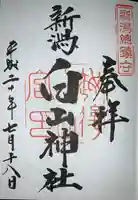 奉拝
新潟總鎮守
新潟
白山神社
平成二十年七月十八日